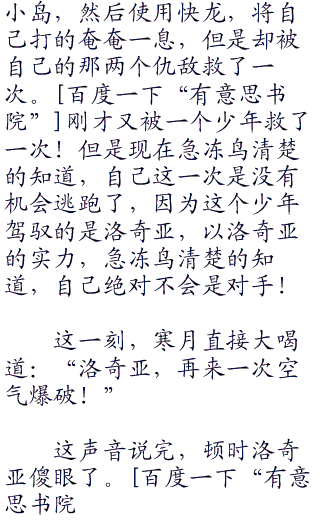 小岛，然后使用快龙，将自
己打的奄奄一息，但是却被
自己的那两个仇敌救了一
次。[百度一下“有意思书
院”]刚才又被一个少年救了
一次！但是现在急冻鸟清楚
的知道，自己这一次是没有
机会逃跑了，因为这个少年
驾驭的是洛奇亚，以洛奇亚
的实力，急冻鸟清楚的知
道，自己绝对不会是对手！
这一刻，寒月直接大喝
道：“洛奇亚，再来一次空
气爆破！”
这声音说完，顿时洛奇
亚傻眼了。[百度一下“有意
思书院